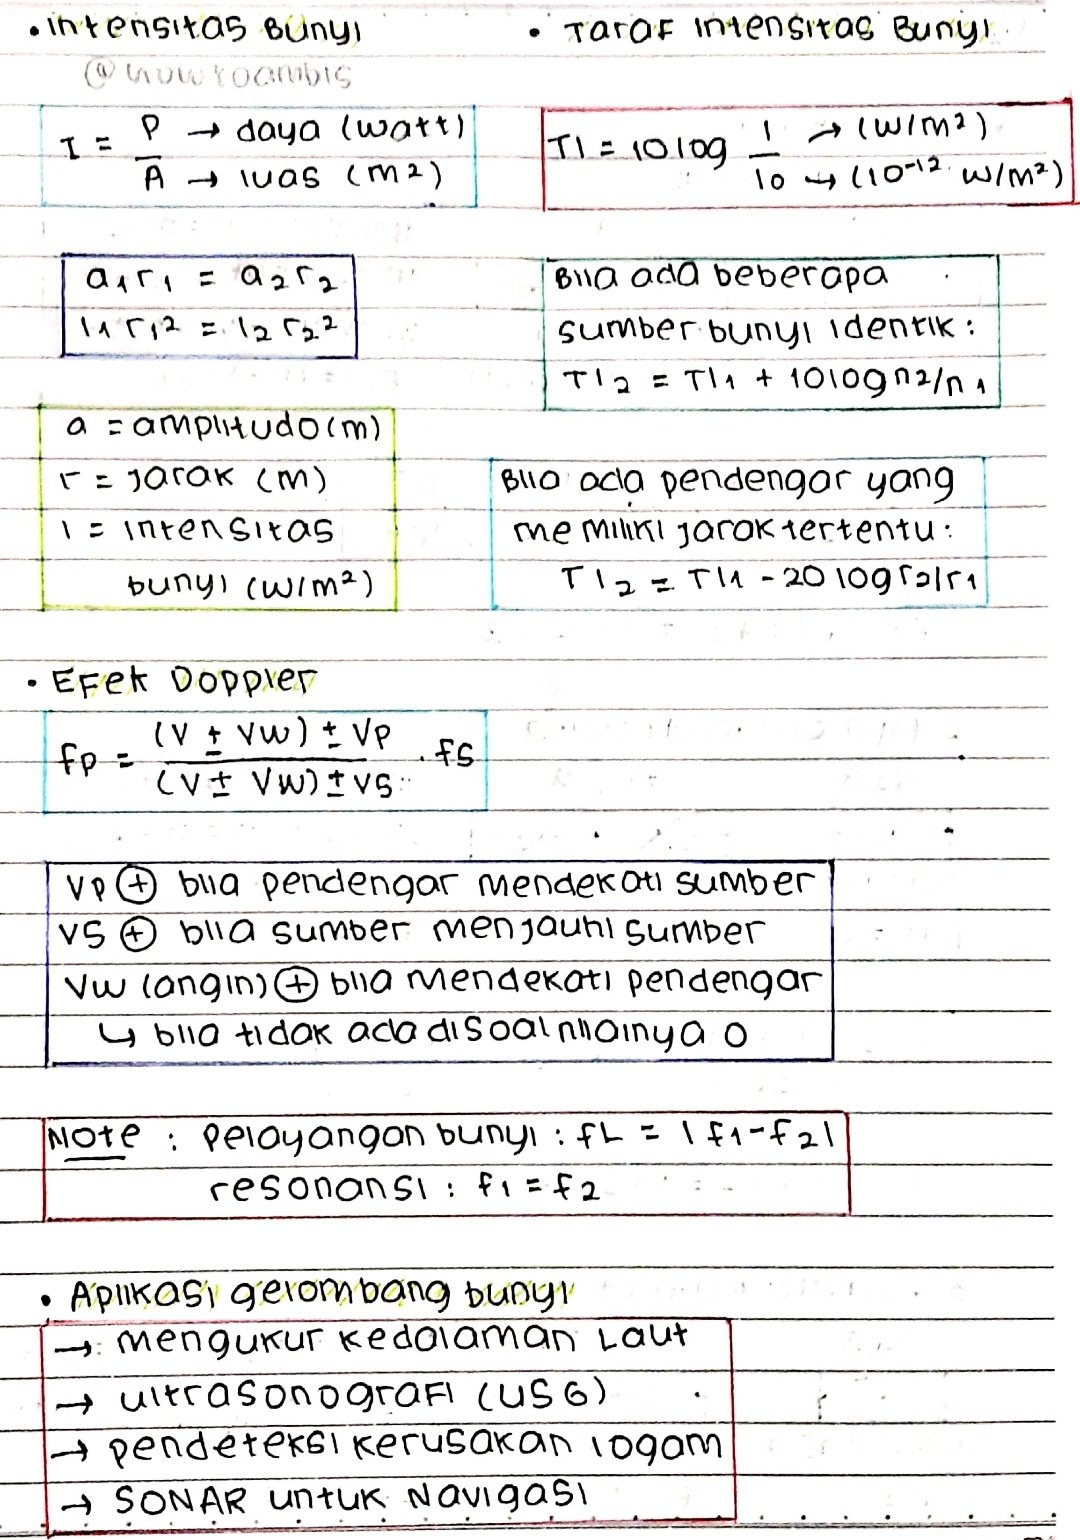 • Intensitas Bunyi
I = P → daya (watt)
A → luas (m²)
a₁r₁ = a₂r₂
I₁ r₁² = I₂ r₂²
a = amplitudo (m)
r = jarak (m)
I = Intensitas
bunyi (W/m²)
• Taraf Intensitas Bunyi
TI = 10 log I → (W/m²)
Io ↪ (10⁻¹² W/m²)
Bila ada beberapa
sumber bunyi identik :
TI₂ = TI₁ + 10 log n₂/n₁
Bila ada pendengar yang
memiliki jarak tertentu :
TI₂ = TI₁ - 20 log r₂/r₁
• Efek Doppler
fp = (V ± Vw) ± Vp . fs
(V ± Vw) ± Vs
Vp ⊕ bila pendengar mendekati sumber
Vs ⊕ bila sumber menjauhi sumber
Vw (angin) ⊕ bila mendekati pendengar
↪ bila tidak ada disoal nilainya 0
Note : Pelayangan bunyi : fL = |f₁-f₂|
resonansi : f₁ = f₂
• Aplikasi gelombang bunyi
→ mengukur kedalaman Laut
→ ultrasonografi (USG)
→ pendeteksi kerusakan logam
→ SONAR untuk Navigasi